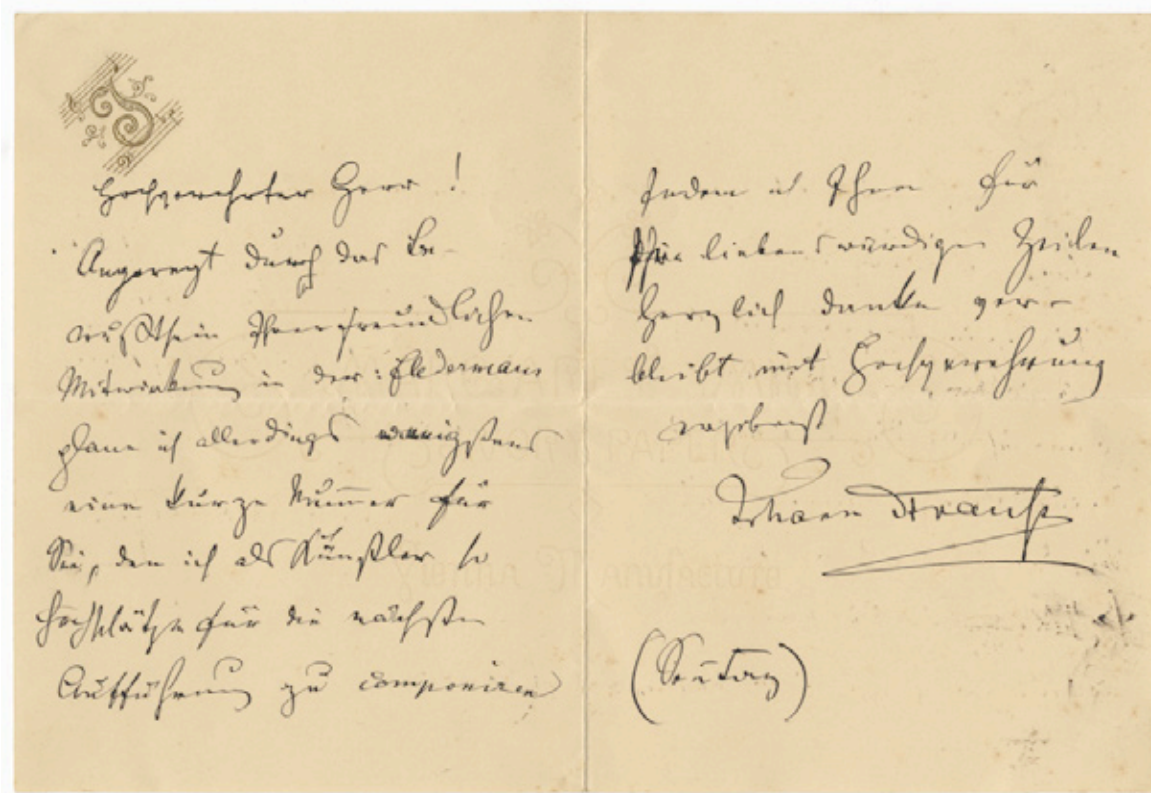 Hochverehrter Herr!
Angeregt durch das Be-
wußtsein Ihrer freundlichen
Mitwirkung in der: Fledermaus
plane ich allerdings wenigstens
eine kurze Nummer für
Sie, den ich als Künstler so
hochschätze für die nächste
Aufführung zu componiren
Indem ich Ihnen für
Ihre liebenswürdigen Zeilen
herzlich danke ver-
bleibt mit Hochverehrung
ergebenst
Johann Strauss
(Sontag)